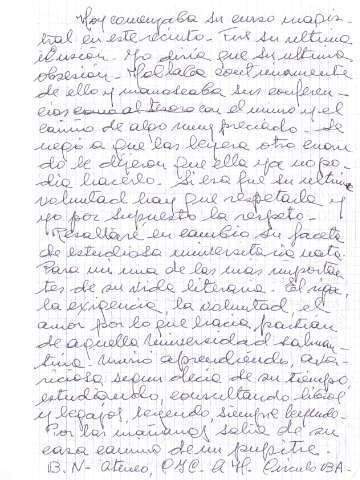 Hoy comenzaba su curso magis-
tral en este recinto. Fue su última
ilusión. Yo diría que su última
obsesión. Hablaba continuamente
de ello y manoseaba sus conferen-
cias como al tesoro con el mimo y el
cariño de algo muy preciado. Se
negó a que las leyera otro cuan-
do le dijeron que ella ya no po-
día hacerlo. Si esa fue su última
voluntad hay que respetarla y
yo por supuesto la respeto.
Resaltaré en cambio su faceta
de estudiosa universitaria nata.
Para mi una de las mas importan-
tes de su vida literaria. El rigor,
la exigencia, la voluntad, el
amor por lo que hacía partían
de aquella Universidad salman-
tina. Murió aprendiendo, ava-
riciosa según decía de su tiempo,
estudiando, consultando libros
y legajos, leyendo, siempre leyendo.
Por las mañanas salía de su
casa camino de un pupitre.
B.N- Ateneo, A.H. Círculo BA-